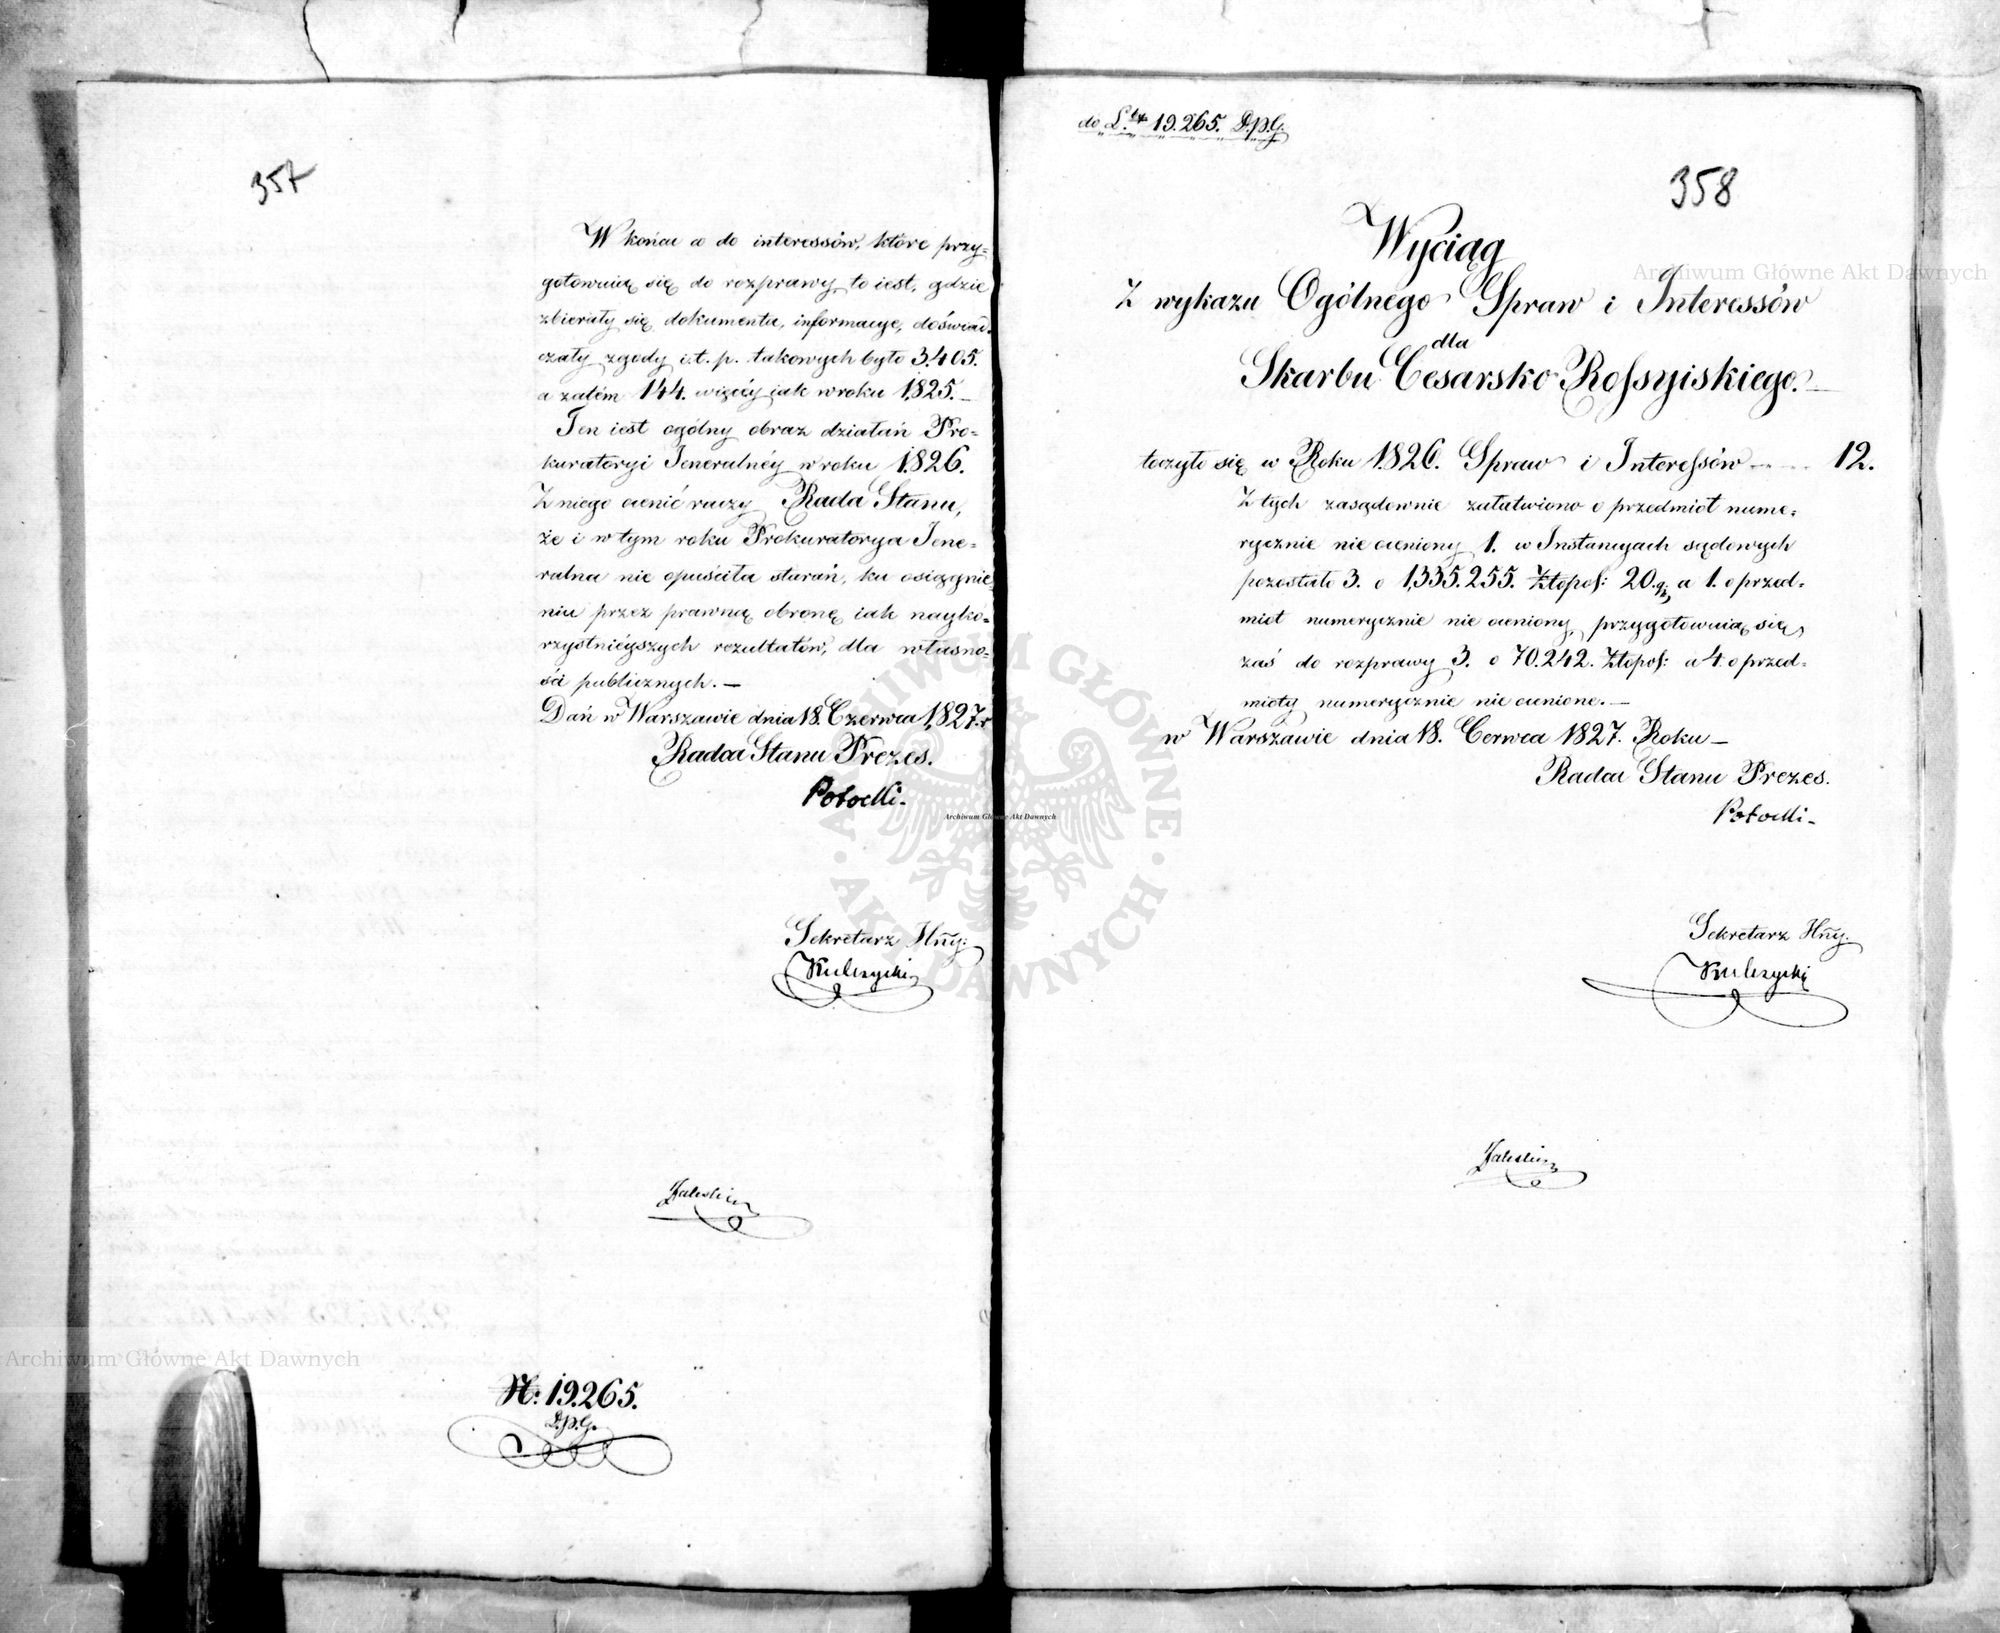 357
W końcu co do interessów, które przy=
gotowuią się do rozprawy, to iest, gdzie
zbierały się dokumenta, informacye, doświad=
czały zgody i.t.p. takowych było 3.405.
a zatém 144. więcéy iak w roku 1825.—
Ten iest ogólny obraz działań Pro=
kuratoryi Jeneralnéy w roku 1826.
Z niego cenić raczy Rada Stanu,
że i w tym roku Prokuratorya Jene=
ralna nie opuściła starań, ku osiągnie=
niu przez prawną obronę iak nayko=
rzystniéyszych rezultatów, dla własno=
ści publicznych.—
Dań w Warszawie dnia 18. Czerwca 1827. r
Radca Stanu Prezes.
Potocki.
Sekretarz Jlny.
Kulczycki
Zaleski
N: 19.265.
D.p.G.
do L. 19.265. D.p.G.
358
Wyciąg
Z wykazu Ogólnego Spraw i Interessów
dla
Skarbu Cesarsko Rossyiskiego.—
toczyło się w Roku 1826. Spraw i Interessów 12.
Z tych zasądownie załatwiono o przedmiot nume=
rycznie nie ceniony 1. w Instancyach sądowych
pozostało 3. o 1,335.255. Złopol: 20. g. a 1. o przed=
miot numerycznie nie ceniony, przygotowuią się
zaś do rozprawy 3. o 70.242. Złopol: a 4. o przed=
mioty numerycznie nie cenione.—
w Warszawie dnia 18. Cerwca 1827. Roku—
Radca Stanu Prezes.
Potocki.
Sekretarz Jlny.
Kulczycki
Zaleski
Archiwum Główne Akt Dawnych
Archiwum Główne Akt Dawnych
Archiwum Główne Akt Dawnych
ARCHIWUM GŁÓWNE · AKT DAWNYCH ·